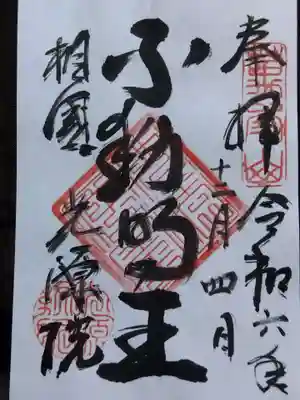 奉拝 令和六年
十二月四日
不動明王
相國 光源院